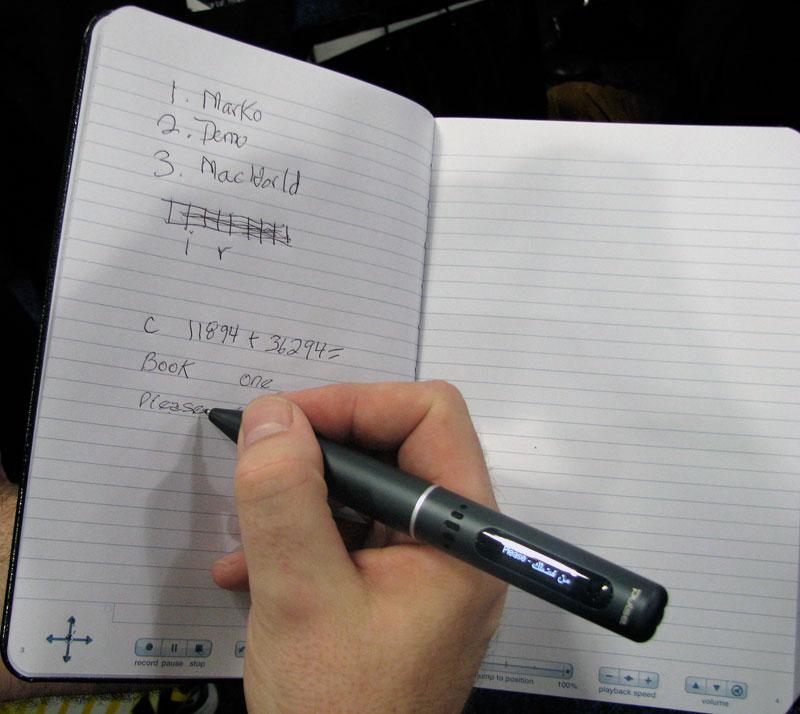 1. Marko
2. Demo
3. MacWorld
i r
C 11894 + 36294=
Book one
Please
Please - من فضلك
PULSE
3
record pause stop
jump to position 100%
playback speed
volume
4